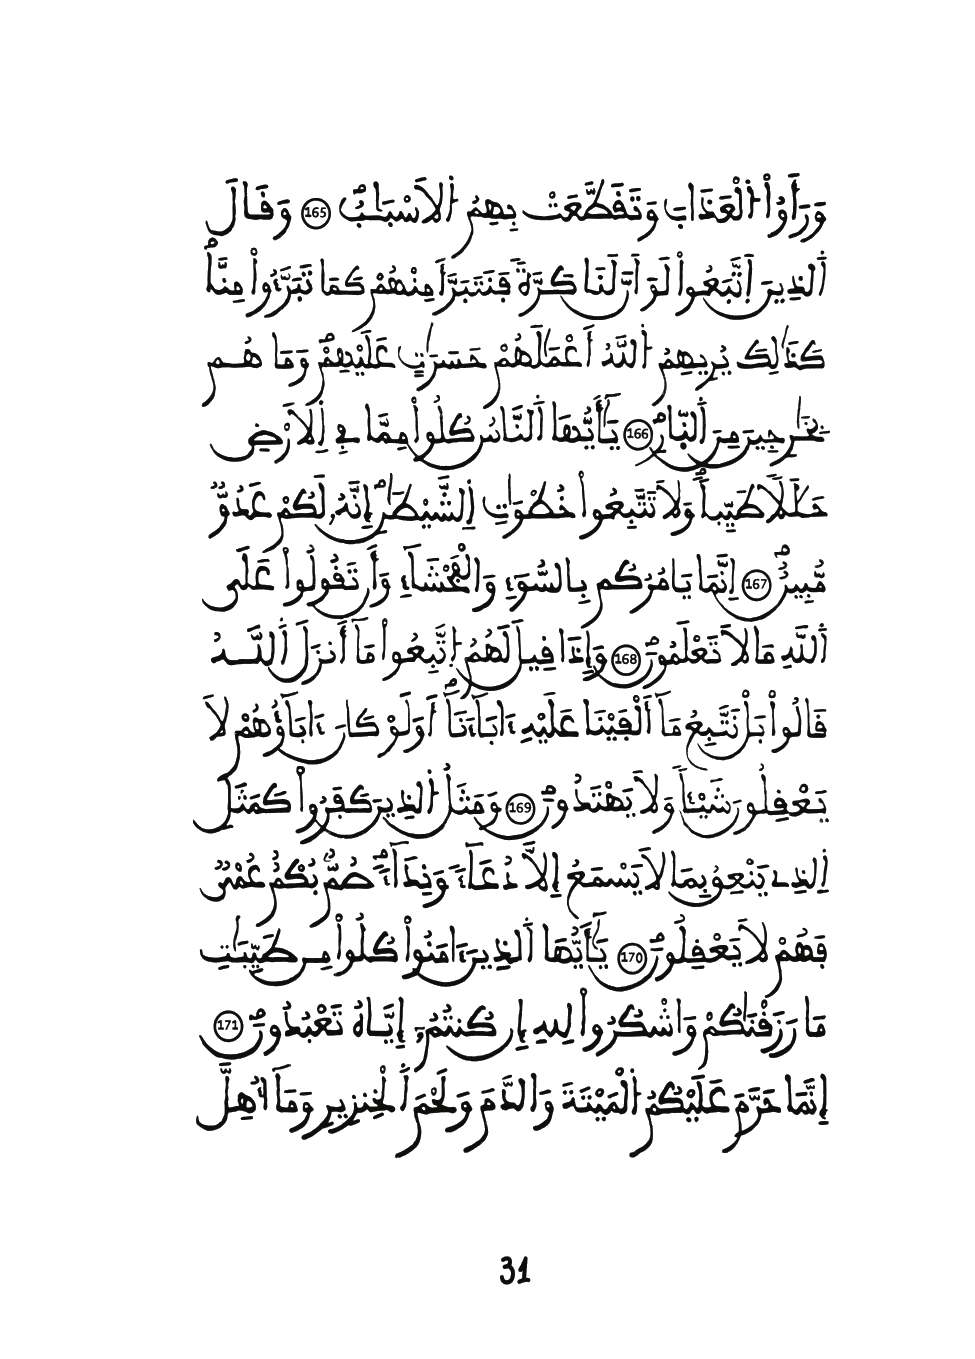 وَرَأَوُاْ اُ۬لْعَذَابَ وَتَقَطَّعَتْ بِهِمُ اُ۬لَاسْبَٰبُۖ 165 وَقَالَ
اَ۬لذِينَ اَ۪تَّبَعُواْ لَوَ اَنَّ لَنَا كَرَّةٗ فَنَتَبَرَّأَ مِنْهُمْ كَمَا تَبَرَّءُواْ مِنَّاۖ
كَذَٰلِكَ يُرِيهِمُ اُ۬للَّهُ أَعْمَٰلَهُمْ حَسَرَٰتٍ عَلَيْهِمْۖ وَمَا هُم
بِخَٰرِجِينَ مِنَ اَ۬لنّ۪ارِۖ 166 يَٰٓأَيُّهَا اَ۬لنَّاسُ كُلُواْ مِمَّا فِے اِ۬لَارْضِ
حَلَٰلاٗ طَيِّباٗۖ وَلَا تَتَّبِعُواْ خُطْوَٰتِ اِ۬لشَّيْطَٰنِۖ إِنَّهُۥ لَكُمْ عَدُوّٞ
مُّبِينٌۖ 167 اِنَّمَا يَامُرُكُم بِالسُّوٓءِ وَالْفَحْشَآءِ وَأَن تَقُولُواْ عَلَى
اَ۬للَّهِ مَا لَا تَعْلَمُونَۖ 168 وَإِذَا قِيلَ لَهُمُ اُ۪تَّبِعُواْ مَآ أَنزَلَ اَ۬للَّهُ
قَالُواْ بَلْ نَتَّبِعُ مَآ أَلْفَيْنَا عَلَيْهِ ءَابَآءَنَآۖ أَوَلَوْ كَانَ ءَابَآؤُهُمْ لَا
يَعْقِلُونَ شَيْـٔاٗ وَلَا يَهْتَدُونَۖ 169 وَمَثَلُ اُ۬لذِينَ كَفَرُواْ كَمَثَلِ
اِ۬لذِے يَنْعِقُ بِمَا لَا يَسْمَعُ إِلَّا دُعَآءٗ وَنِدَآءٗۖ صُمُّۢ بُكْمٌ عُمْيٞ
فَهُمْ لَا يَعْقِلُونَۖ 170 يَٰٓأَيُّهَا اَ۬لذِينَ ءَامَنُواْ كُلُواْ مِن طَيِّبَٰتِ
مَا رَزَقْنَٰكُمْ وَاشْكُرُواْ لِلهِ إِن كُنتُمُۥٓ إِيَّاهُ تَعْبُدُونَۖ 171
إِنَّمَا حَرَّمَ عَلَيْكُمُ اُ۬لْمَيْتَةَ وَالدَّمَ وَلَحْمَ اَ۬لْخِنزِيرِ وَمَآ أُهِلَّ
31